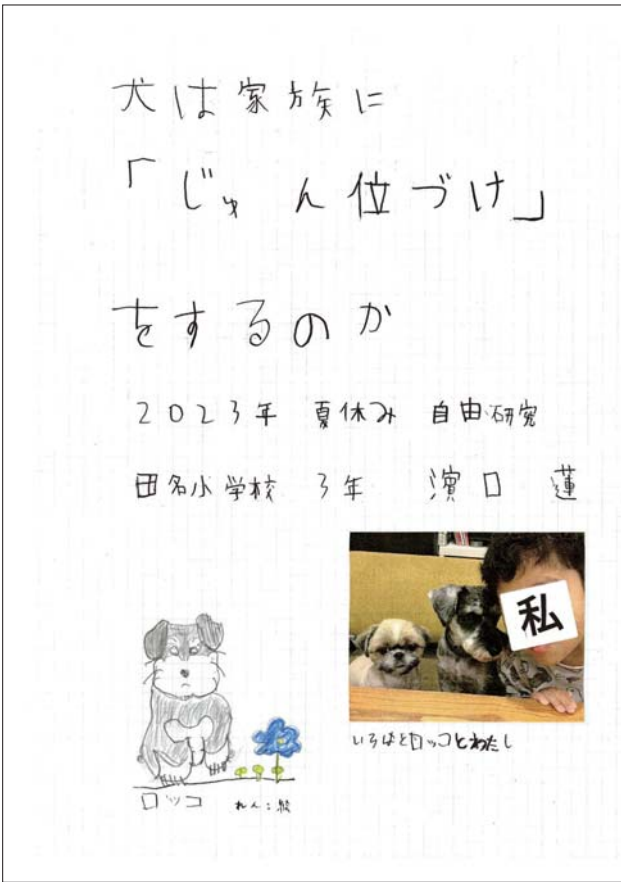 犬は家族に
「じゅん位づけ」
をするのか
2023年 夏休み 自由研究
田名小学校 3年 濱口 蓮
私
いろはとロッコとわたし
ロッコ れん:絵